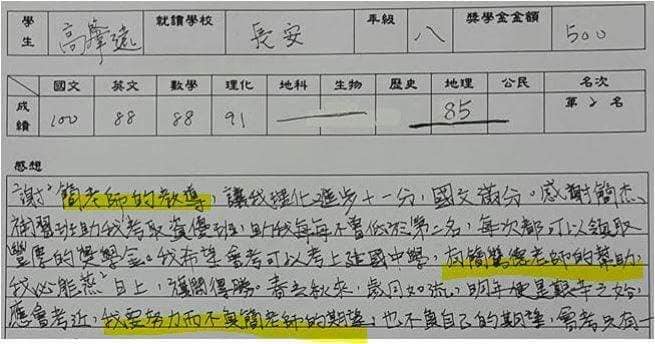 學生 高肇遠 就讀學校 長安 年級 八 獎學金金額 500
國文 英文 數學 理化 地科 生物 歷史 地理 公民 名次
成績 100 88 88 91 85 第2名
感想
謝謝簡老師的教導,讓我理化進步十一分,國文滿分。感謝簡杰
補習班助我考取資優班,助我每每不曾低於第二名,每次都可以領取
豐厚的獎學金。我希望會考可以考上建國中學,有簡 老師的幫助
我必能蒸蒸日上,旗開得勝。春去秋來,歲月如流,明年便是艱辛之始,
應會考近,我要努力而不負簡老師的期望,也不負自己的期望,會考只有一